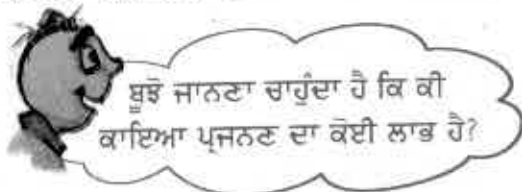 ਬੂਝੋ ਜਾਨਣਾ ਚਾਹੁੰਦਾ ਹੈ ਕਿ ਕੀ
ਕਾਇਆ ਪ੍ਰਜਨਣ ਦਾ ਕੋਈ ਲਾਭ ਹੈ?